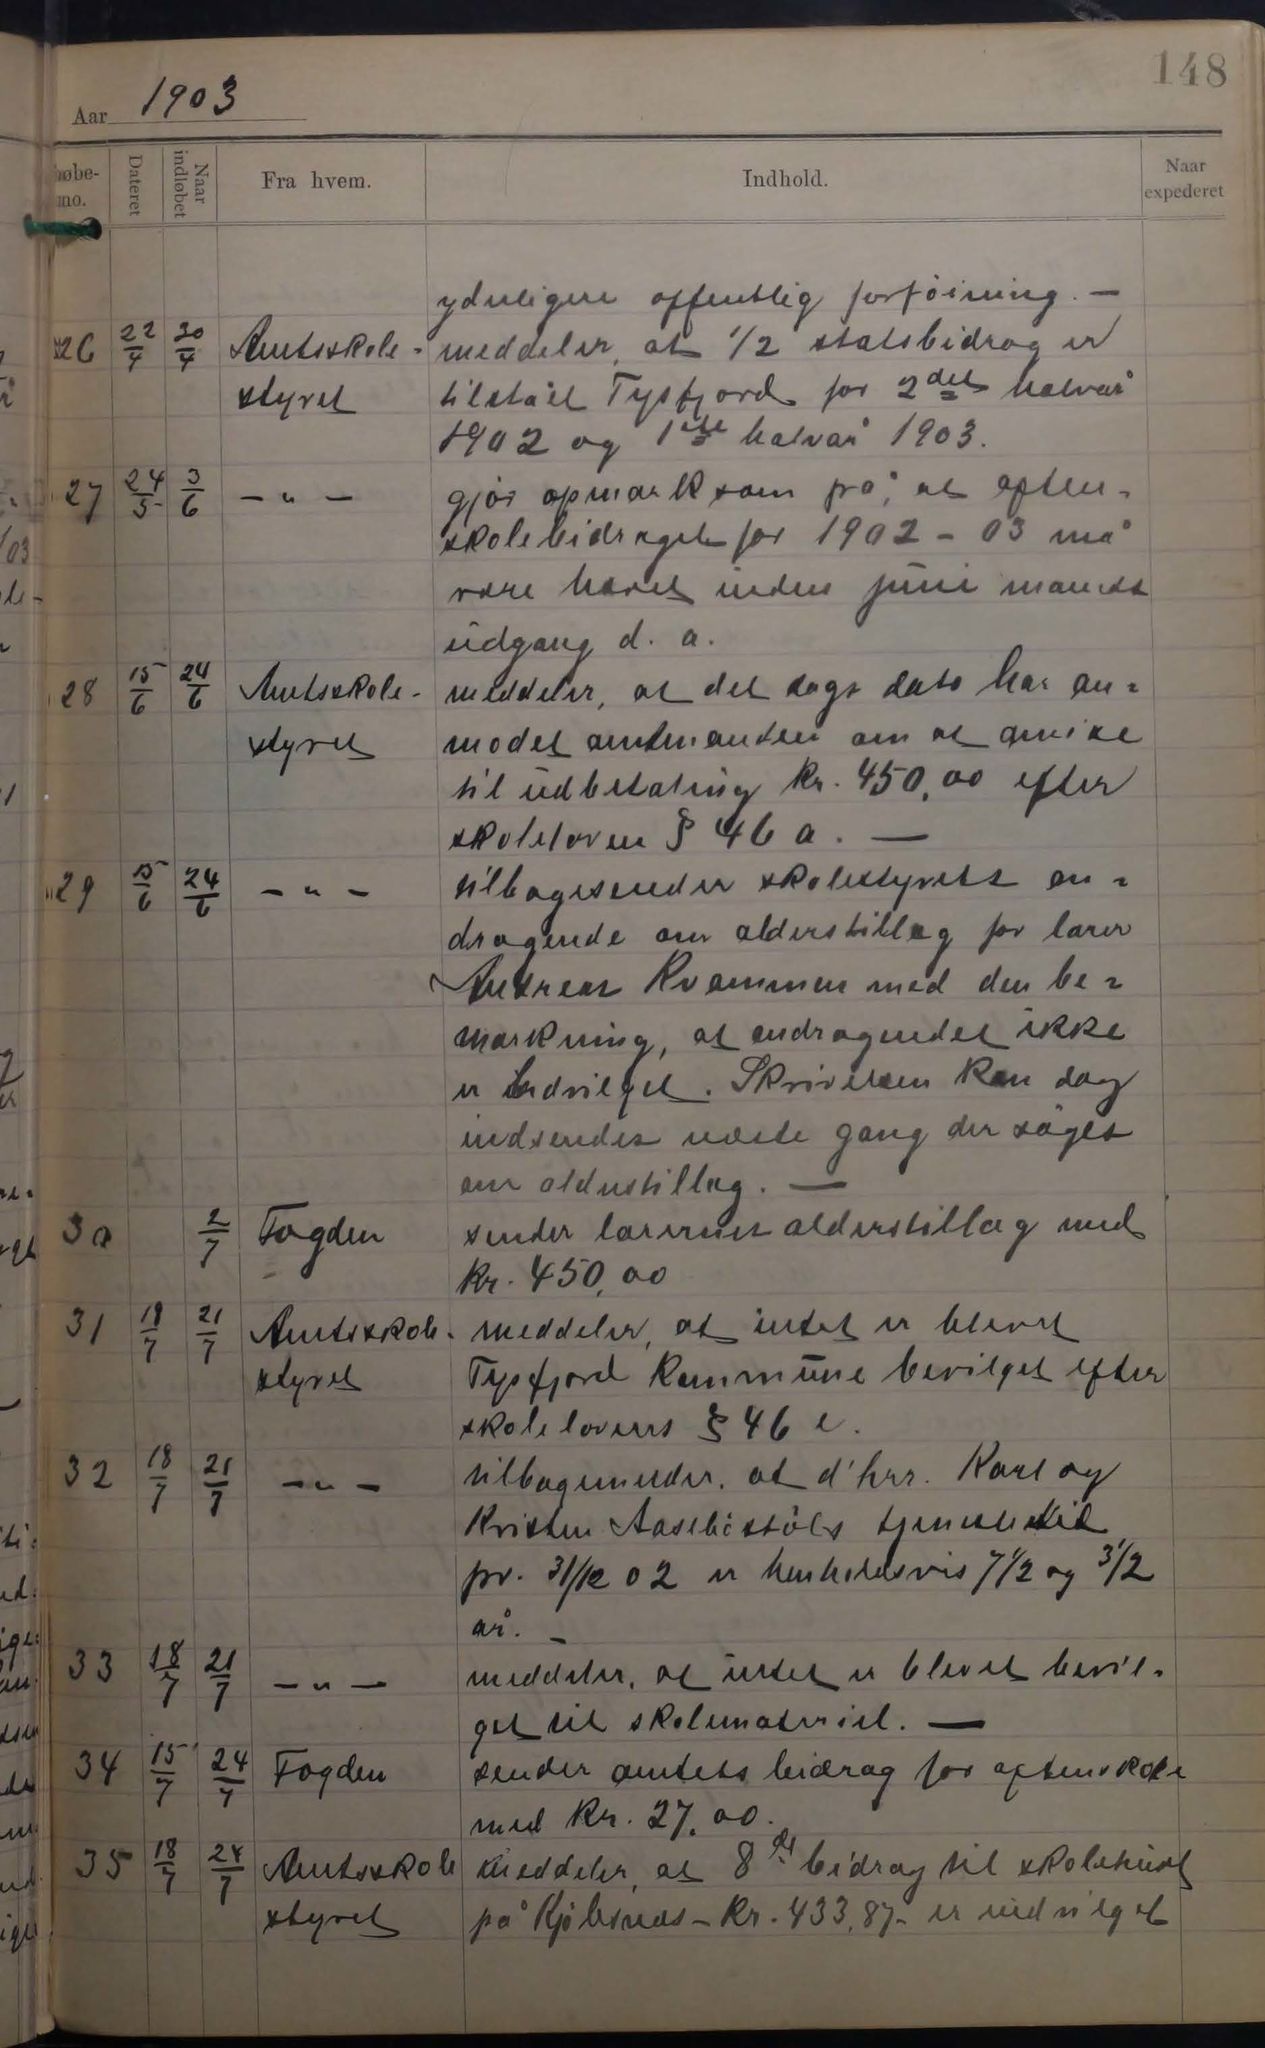 148
Aar 1903
løbe- Dateret Naar Fra hvem. Indhold. Naar
no. indløbet expederet
yderligere offentlig forföining. —
26 22/4 30/4 Amtsskole- meddeler, at 1/2 statsbidrag er
styret tilstået Tysfjord for 2det halvår
1902 og 1ste halvår 1903.
27 24/5 3/6 — " — gjör opmærksom på, at aften-
skolebidraget for 1902 - 03 må
være hævet inden juni måneds
udgang d. a.
28 15/6 24/6 Amtsskole- meddeler, at det dags dato har an-
styret modet amtmanden om at anvise
til udbetaling kr. 450,00 efter
skoleloven § 46 a. —
29 15/6 24/6 — " — tilbagesender skolestyrets an-
dragende om alderstillæg for lærer
Andreas Kvammen med den be-
mærkning, at andragendet ikke
er indvilget. Skrivelsen kan dog
indsendes næste gang der söges
om alderstillæg. —
30 2/7 Fogden sender lærernes alderstillæg med
kr. 450,00
31 18/7 21/7 Amtsskole- meddeler, at intet er blevet
styret Tysfjord kommune bevilget efter
skolelovens § 46 e.
32 18/7 21/7 — " — at d'hrr. Karl og
Kristen tjenestetid
pr. 31/12 02 er henholdsvis 7 1/2 og 3 1/2
år. —
33 18/7 21/7 — " — meddeler, at intet er blevet bevil-
get til skolemateriel. —
34 15/7 24/7 Fogden sender amtets bidrag for aftenskole
med kr. 27,00.
35 18/7 24/7 Amtsskole meddeler, at 8de bidrag til skolehuset
styret på Kjöbsnes - kr. 433,87 - er indvilget